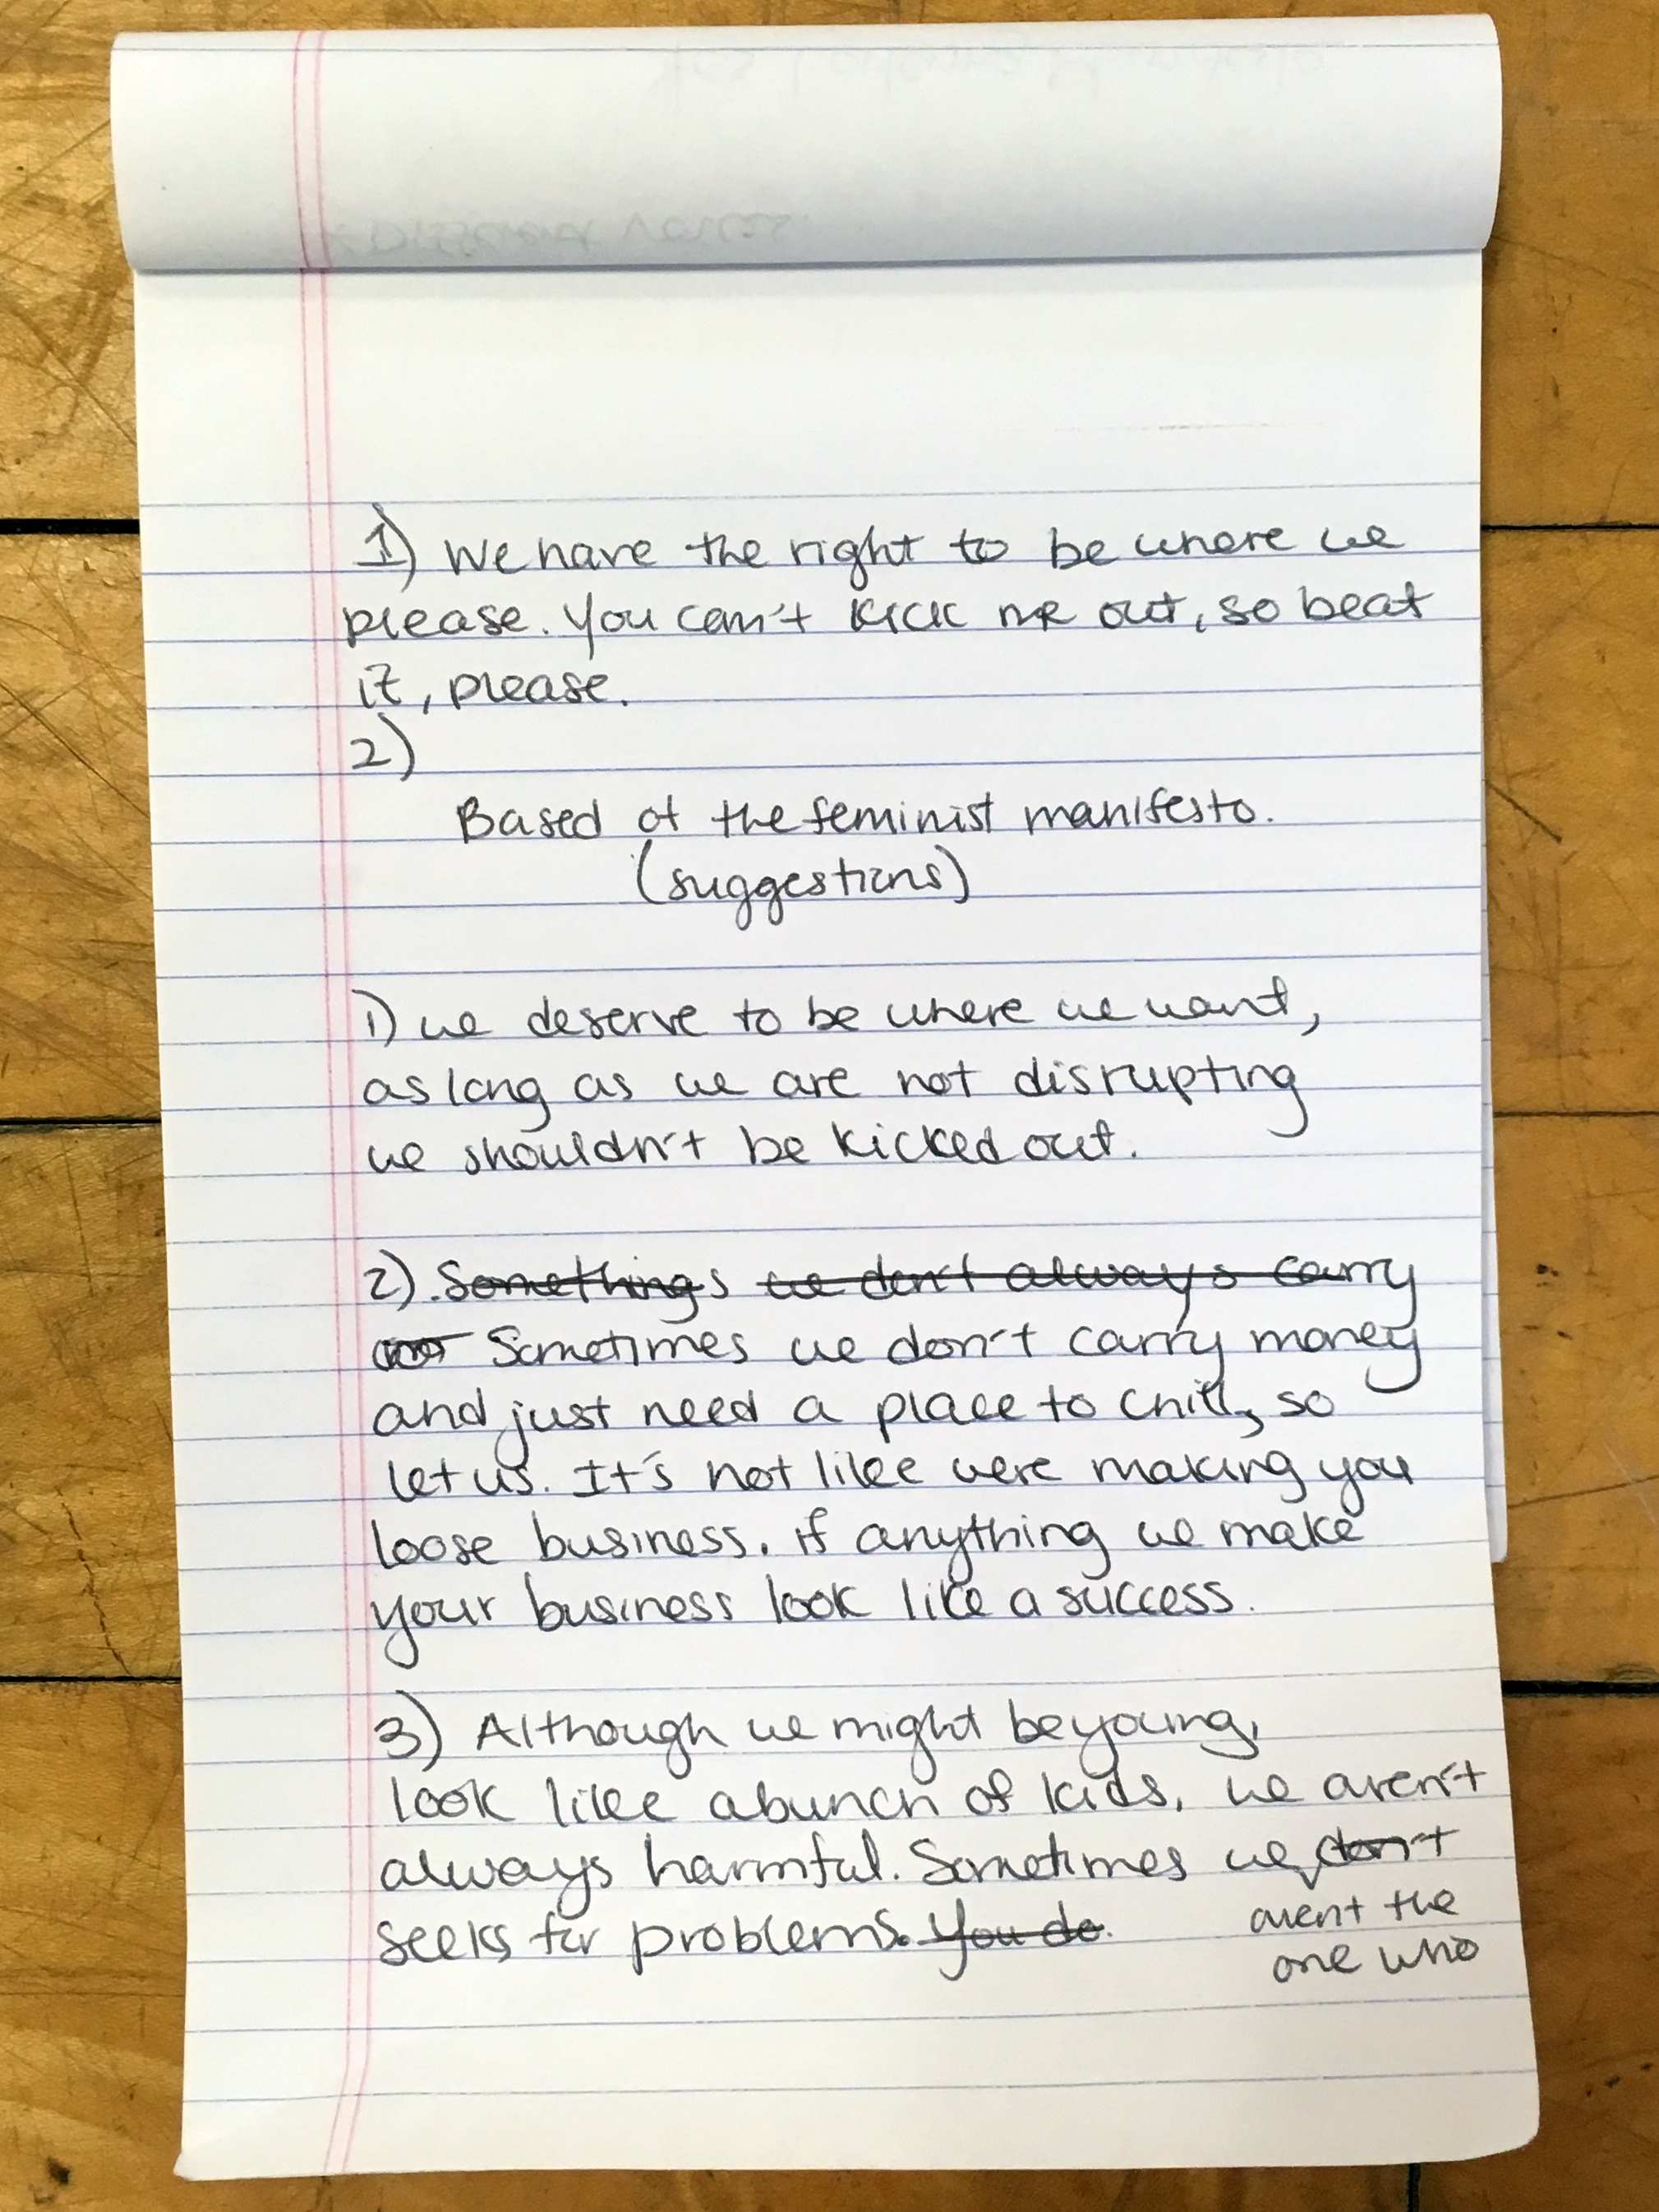 1) We have the right to be where we
please. You can't kick me out, so beat
it, please.
2)
Based of the feminist manifesto.
(suggestions)
1) we deserve to be where we want,
as long as we are not disrupting
we shouldn't be kicked out.
2). Somethings we don't always carry
Sometimes we don't carry money
and just need a place to chill, so
let us. It's not like were making you
loose business. if anything we make
your business look like a success.
3) Although we might be young,
look like a bunch of kids, we aren't
always harmful. Sometimes we don't
arent the
one who
seeks for problems. You do.